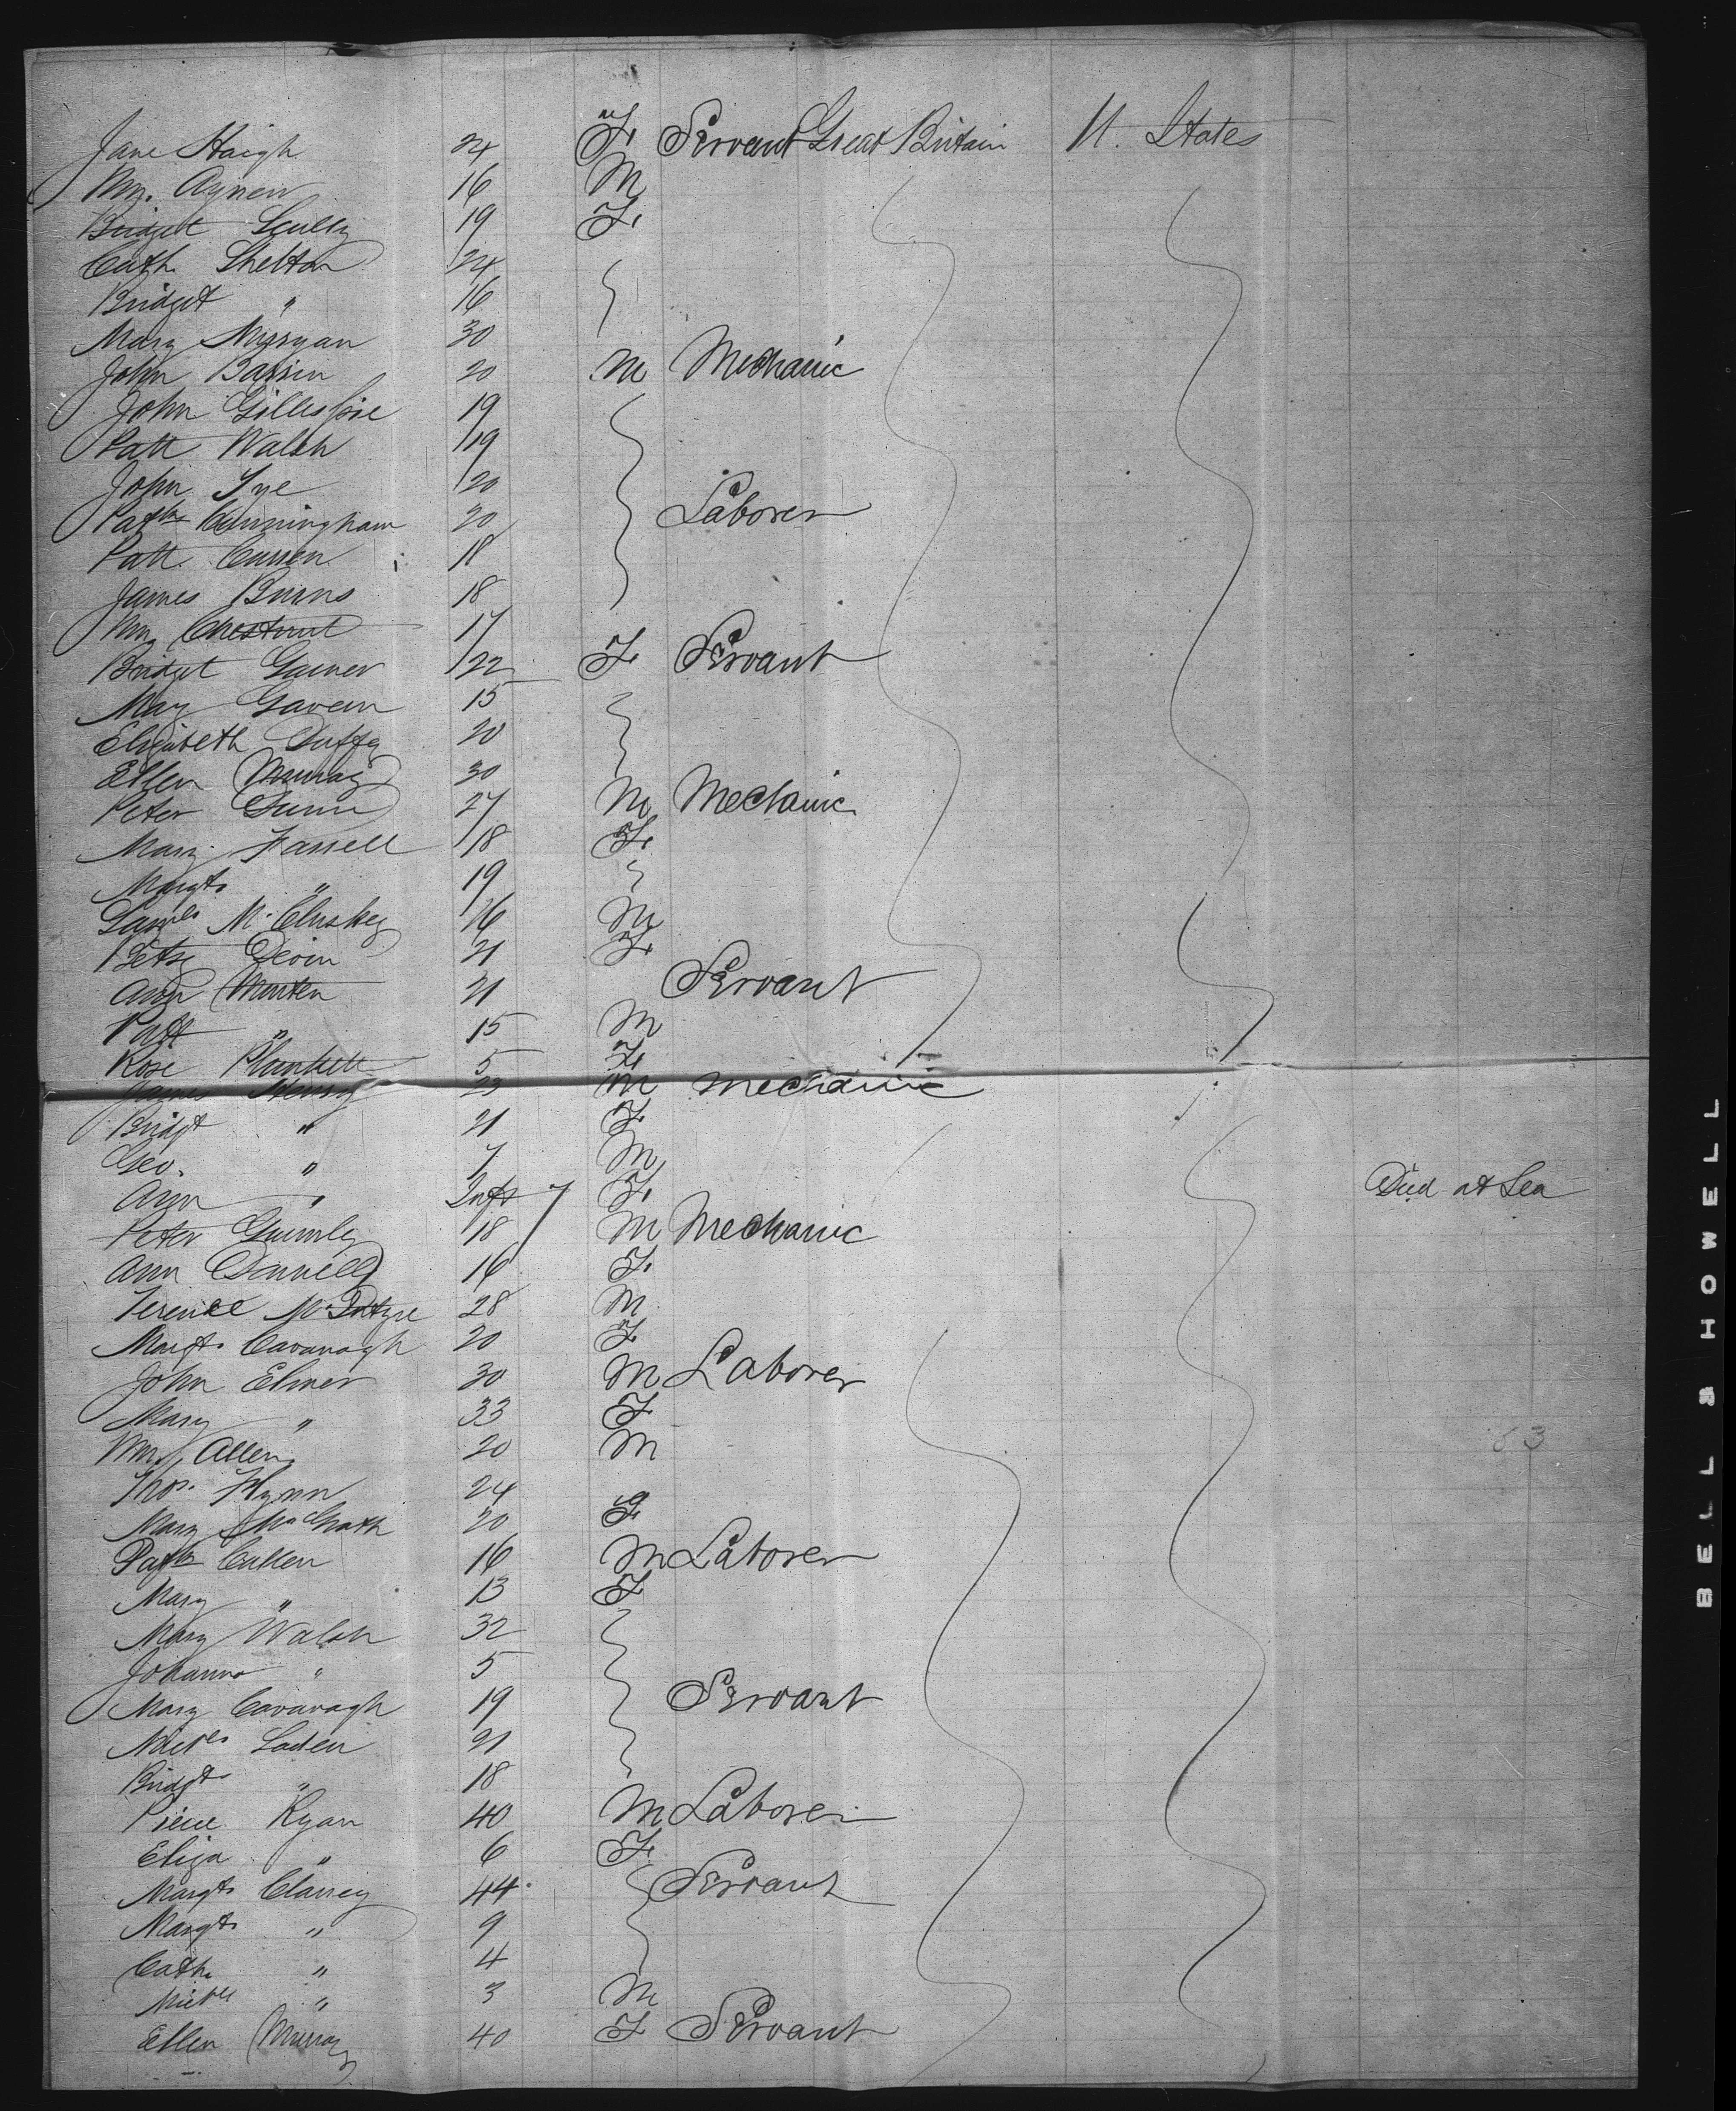 Jane Haigh 24 F. Servant Great Britain U. States
Wm. Agnew 16 M
Bridget Scully 19 F.
Cath. Shelton 24
Bridget " 16
Mary Morgan 30
John 20 M Mechanic
John Gillespie 19
Patt Walsh 19
John Tye 20
Patk Cunningham 20 Laborer
Patt. Curren 18
James Burns 18
Wm Chestnut 17
Bridget Garner 22 F. Servant
May Gavern 15
Elizabeth Duffy 20
Ellen Murray 30
Peter Gunn 27 M Mechanic
Mary Farrell 18 F.
Margt. " 19
McCluskey 16 M
Betsy Devin 21 F.
Servant
Ann Marten 21
Patt " 15 M
Rose Plunkett 5 F.
James Henry 23 M Mechanic
Bridgt " 21 F.
Geo. " 7 M
Ann " Inft F. Died at Sea
Peter Gumley 18 M Mechanic
Ann Daniell 16 F.
Terence McIntyre 28 M
Margt. Cavanagh 20 F.
John Elmer 30 M Laborer
Mary " 33 F
Wm. Allen 20 M
Thos. Flynn 24
Mary McGrath 20 F
Patk Cullen 16 M Laborer
Mary " 13 F
Mary Walsh 32
Johanna " 5
Mary Cavanagh 19 Servant
Laden 21
Bridgt " 18
Pierce Ryan 40 M Laborer
Eliza " 6 F.
Margt. Clancy 44 Servant
Margt. " 9
Cath. " 4
Michl " 3 M
Ellen Murray 40 F Servant
63
BELL & HOWELL